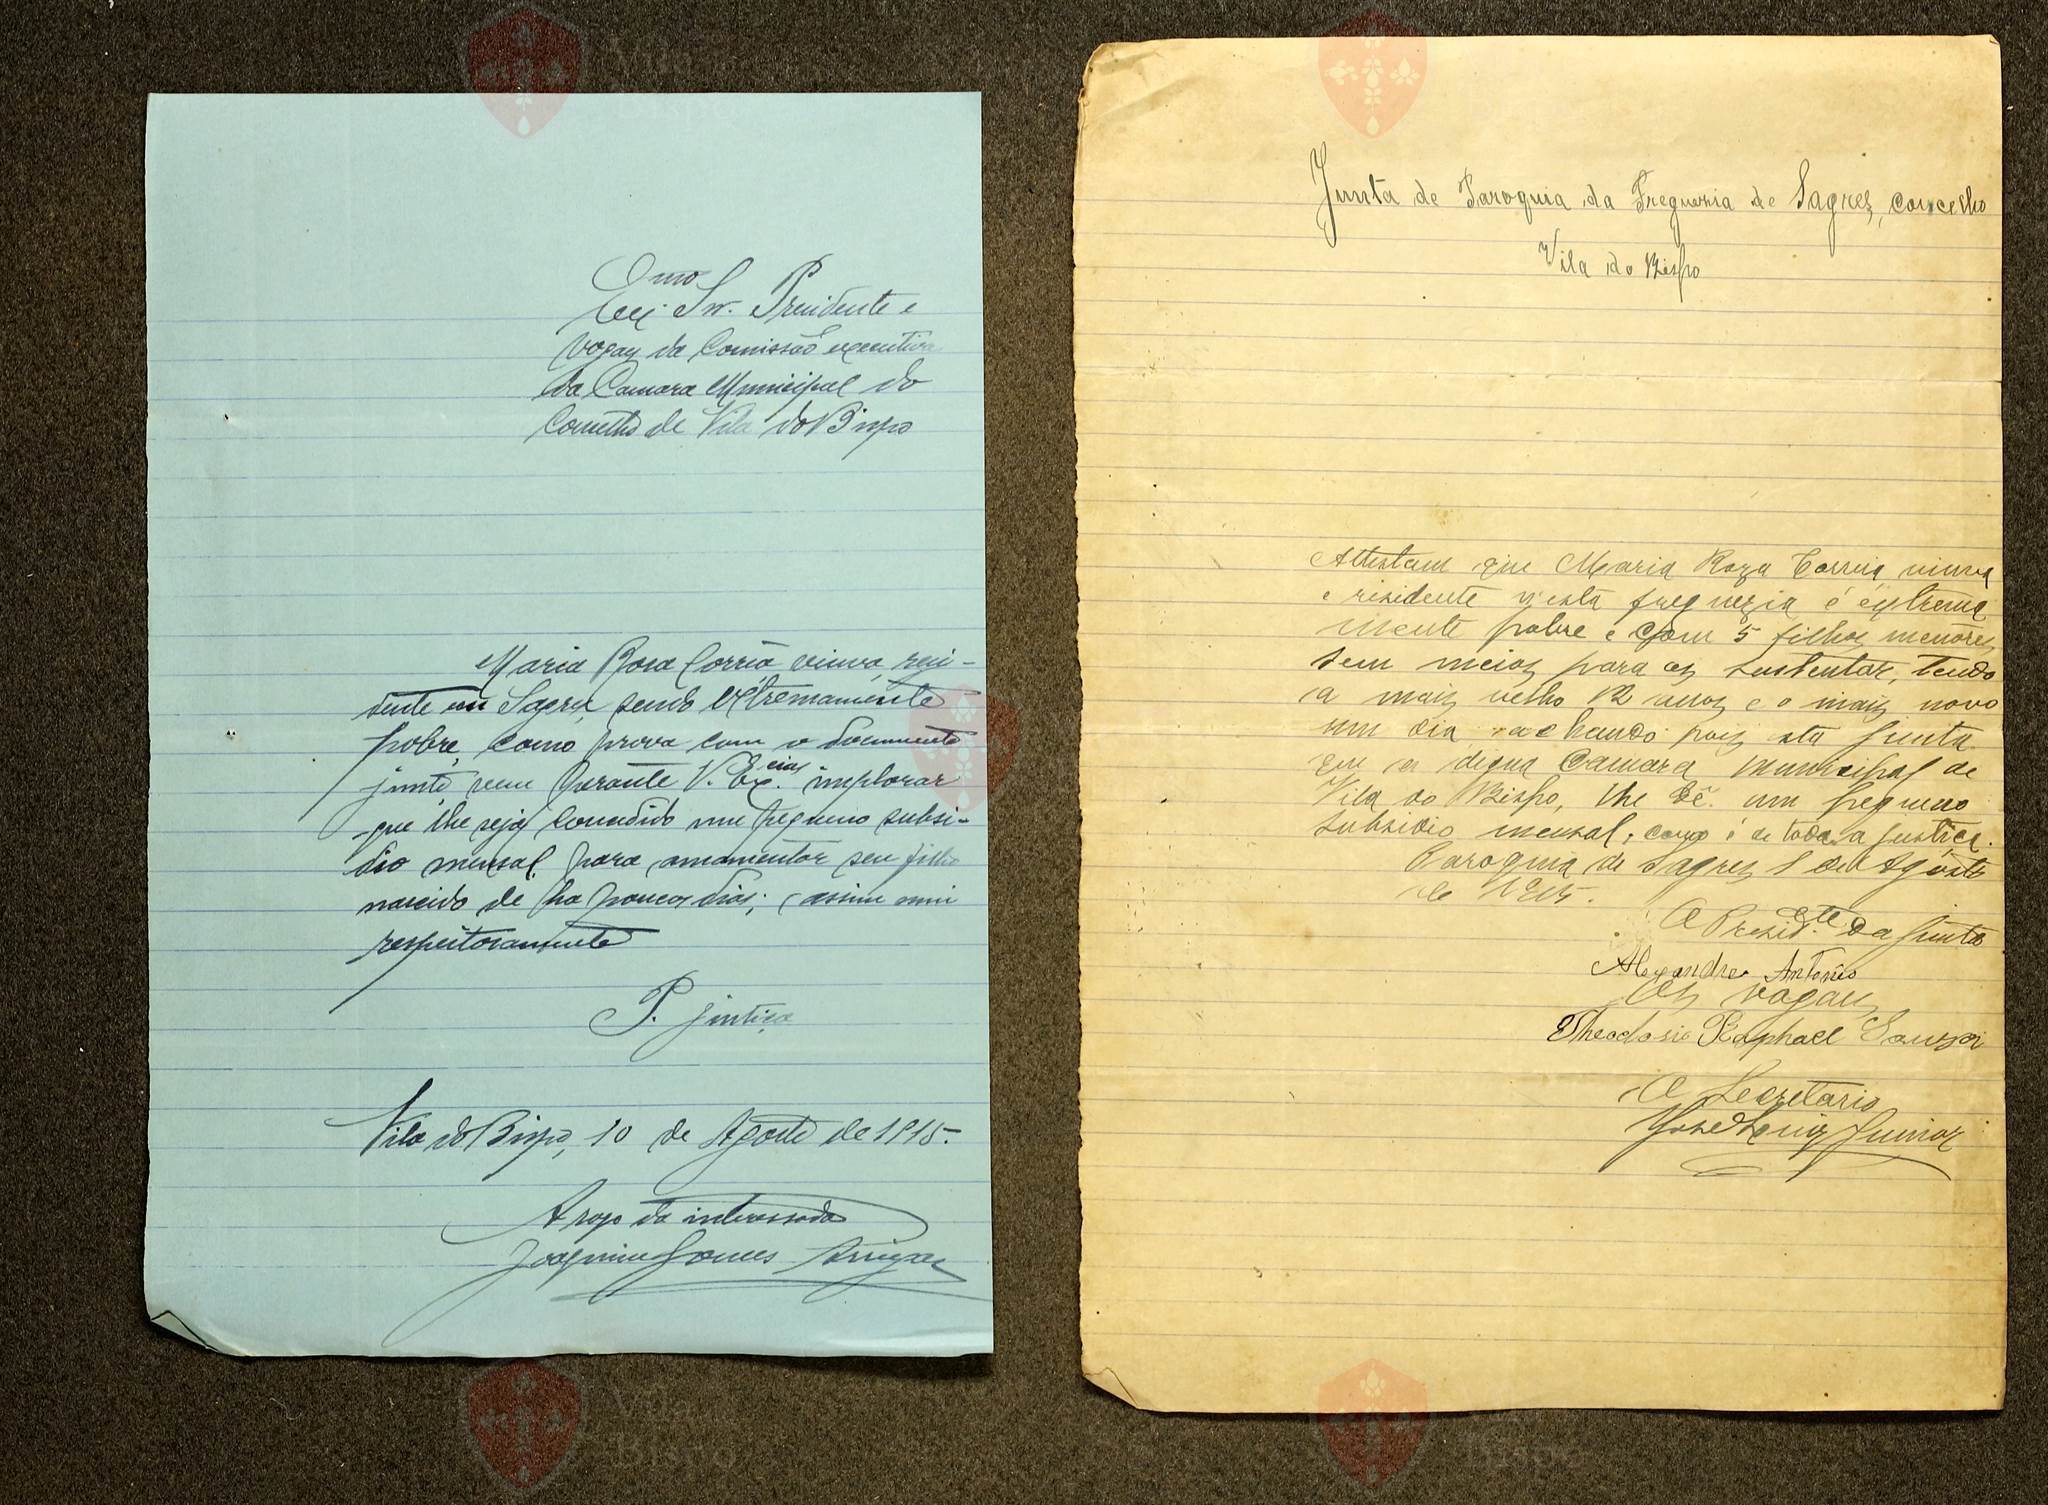 Exmo Snr. Presidente e
vogaes da Comissão executiva
da Camara Municipal do
Concelho de Vila do Bispo
Maria Rosa Corrêa, viuva, resi-
dente em Sagres, sendo extremamente
pobre, como prova com o documento
junto, vem perante V. Ex.cias implorar
que lhe seja concedido um pequeno subsi-
dio mensal, para amamentar seu filho
nascido de ha poucos dias; e assim mui
respeitosamente
P. justiça
Vila do Bispo, 10 de Agosto de 1915.
A rogo da interessada
Joaquim Gomes
Junta de Paroquia da Freguezia de Sagres, concelho
Vila do Bispo
Attestam que Maria Roza Correia, viuva
e rezidente n'esta freguezia é extrema
mente pobre e com 5 filhos menores,
sem meios para os sustentar, tendo
o mais velho 12 anos e o mais novo
um dia achando pois esta junta
que a digna Camara Municipal de
Vila do Bispo, lhe dê um pequeno
subsidio mensal, como é de toda a justiça.
Paroquia de Sagres 1 de Agosto
de 1915.
O Presid.te da Junta
Alexandre Antonio
Os vogaes
Theodosio Raphael Souza
O Secretario
José Luiz Junior
Vila do
Bispo
Vila do
Bispo
Bispo